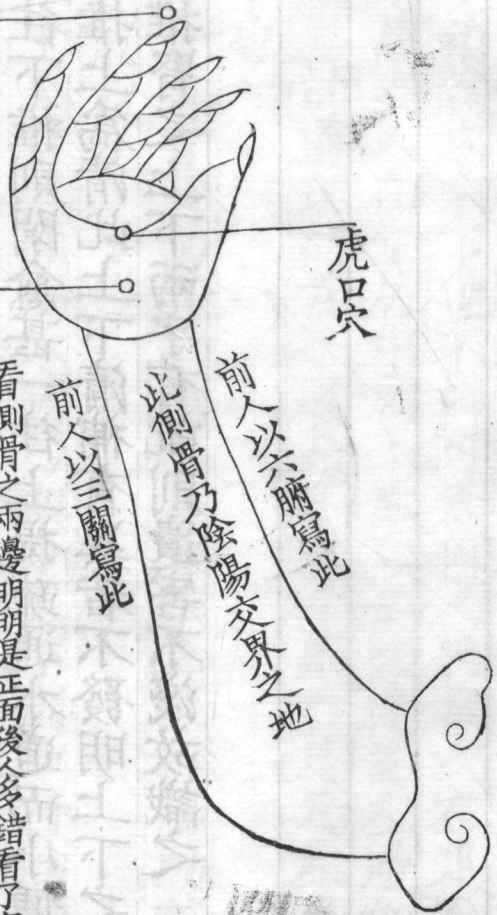 虎口穴
前人以六腑寫此
此側骨乃陰陽交界之地
前人以三關寫此
看則骨之兩邊明明是正面後人多錯看了